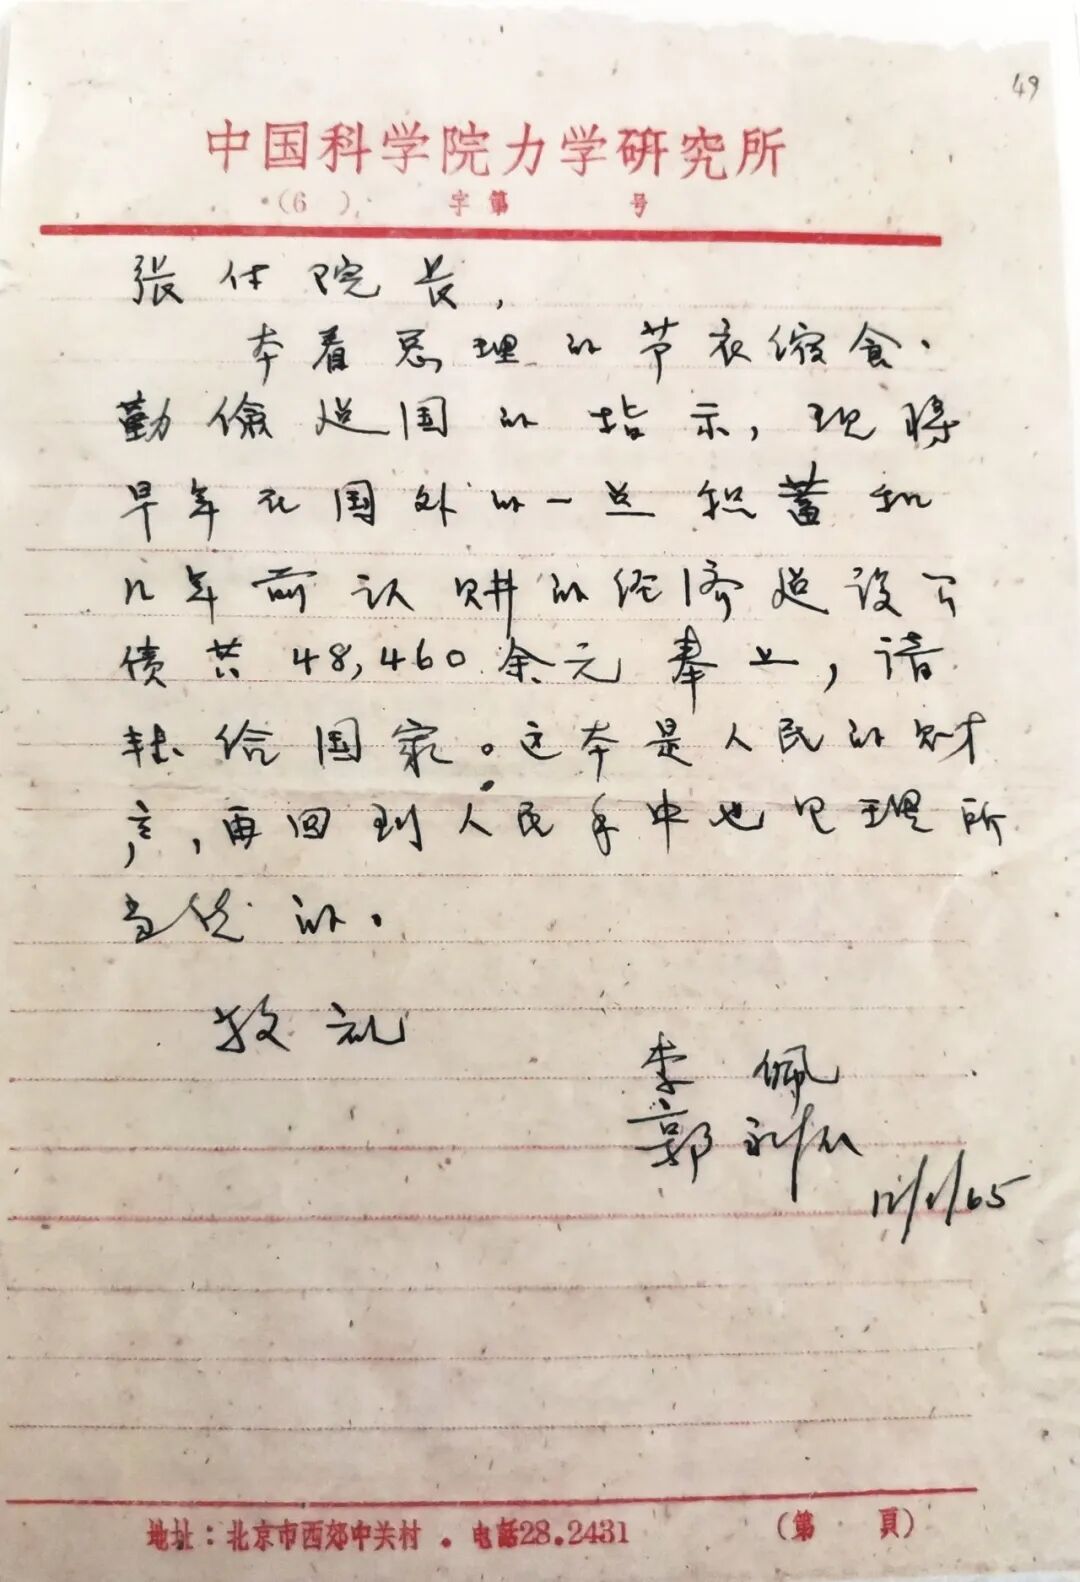 49
中国科学院力学研究所
(6) 字第 号
张付院长,
本着总理的节衣缩食、
勤俭建国的指示,现将
早年在国外的一点积蓄和
几年前认购的经济建设公
债共48,460余元奉上,请
转给国家。这本是人民的财
产,再回到人民手中也是理所
当然的。
敬礼
李佩
郭永怀
12/1/65
地址:北京市西郊中关村.电話28.2431
(第 頁)